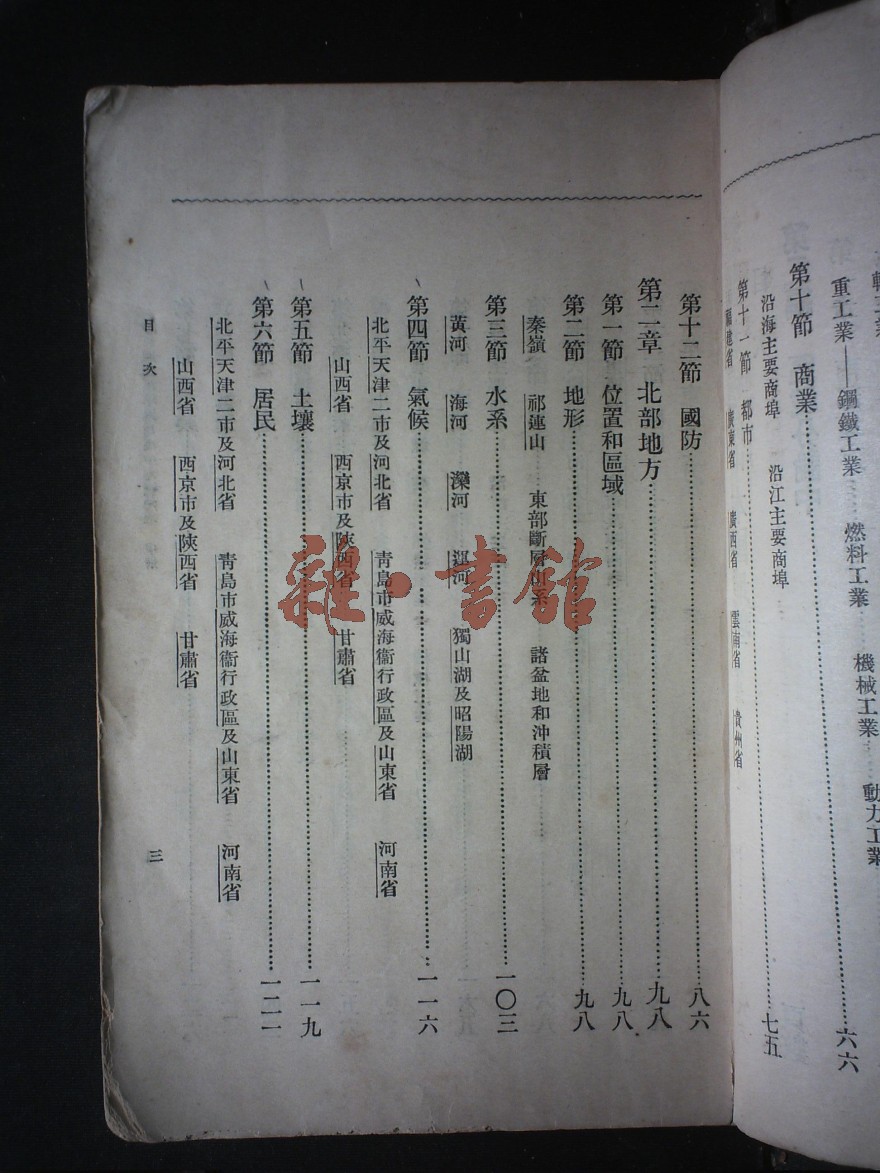 重工業——鋼鐵工業　燃料工業　機械工業　動力工業
第十節　商業……六六
沿海主要商埠　沿江主要商埠
第十一節　都市……七五
福建省　廣東省　廣西省　雲南省　貴州省
第十二節　國防……八六
第二章　北部地方……九八
第一節　位置和區域……九八
第二節　地形……九八
秦嶺　祁連山　東部斷層山系　諸盆地和沖積層
第三節　水系……一〇三
黃河　海河　灤河　運河　獨山湖及昭陽湖
第四節　氣候……一一六
北平天津二市及河北省　青島市威海衞行政區及山東省　河南省
山西省　西京市及陝西省　甘肅省
第五節　土壤……一一九
第六節　居民……一二一
北平天津二市及河北省　青島市威海衞行政區及山東省　河南省
山西省　西京市及陝西省　甘肅省
目次　三
雜·書館